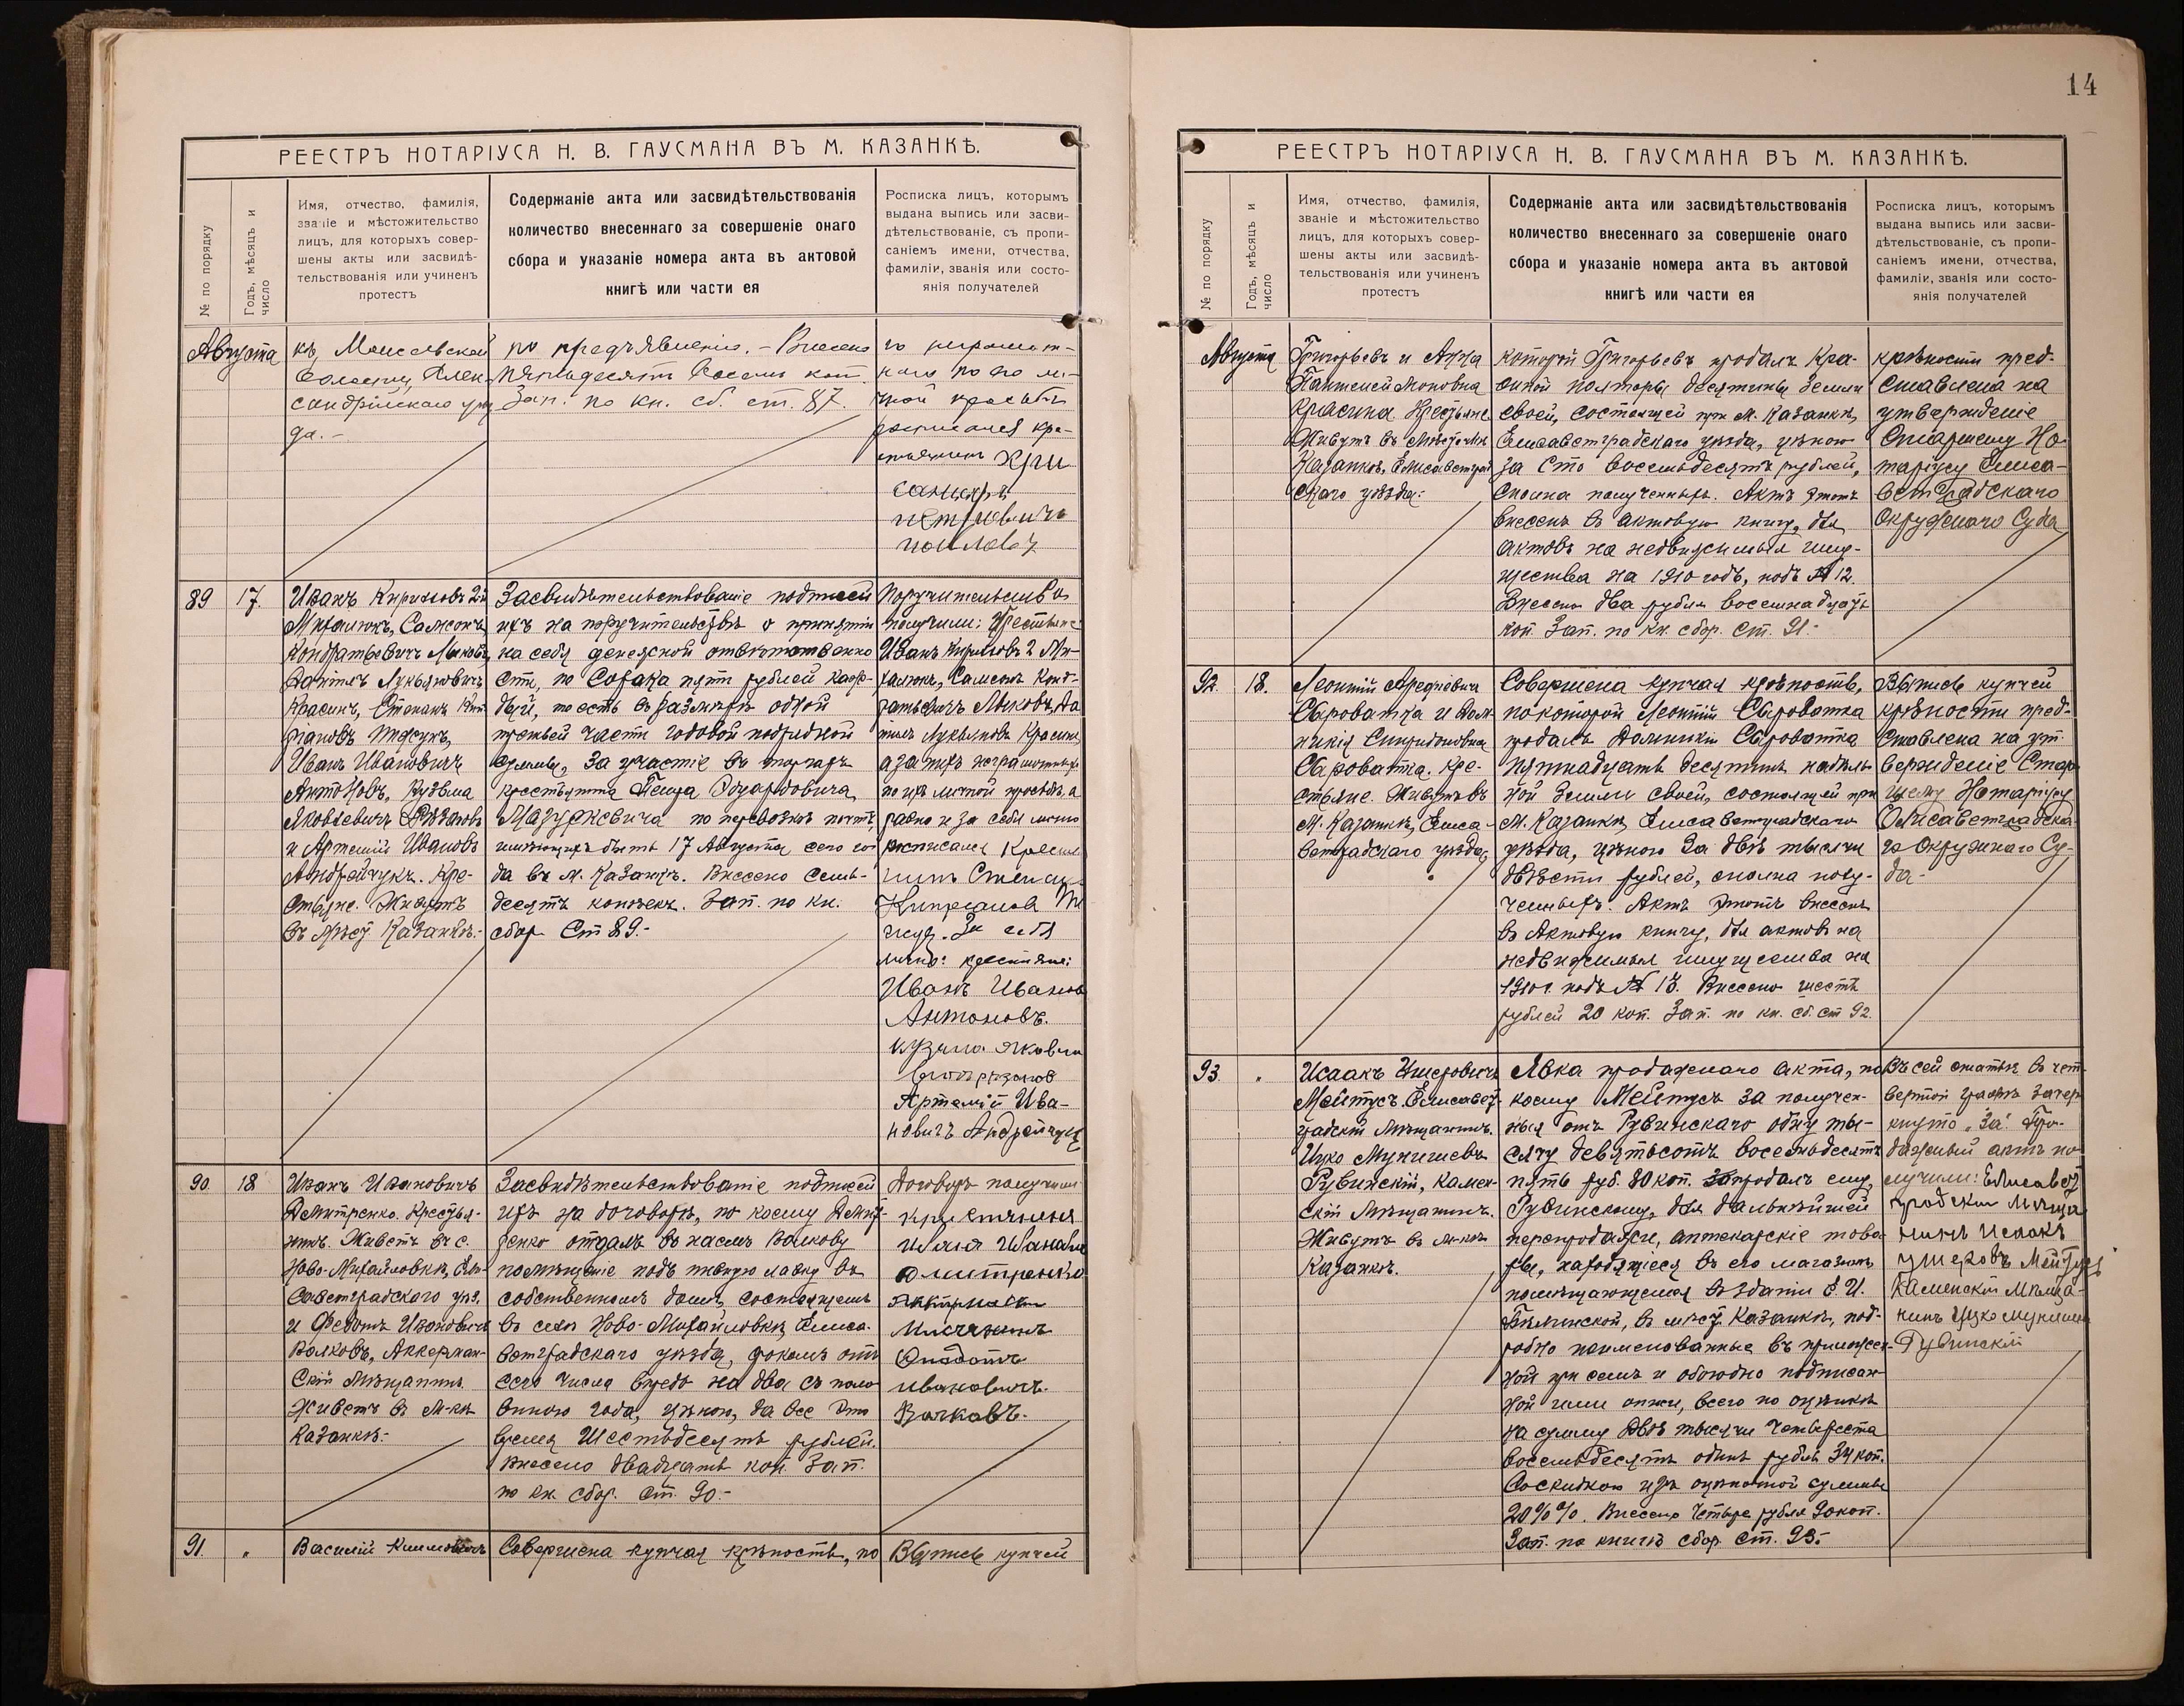 14
РЕЕСТРЪ НОТАРІУСА Н. В. ГАУСМАНА ВЪ М. КАЗАНКѢ.
№ по порядку
Годъ, мѣсяцъ и
число
Имя, отчество, фамилія,
званіе и мѣстожительство
лицъ, для которыхъ совер-
шены акты или засвидѣ-
тельствованія или учиненъ
протестъ
Содержаніе акта или засвидѣтельствованія
количество внесеннаго за совершеніе онаго
сбора и указаніе номера акта въ актовой
книгѣ или части ея
Росписка лицъ, которымъ
выдана выпись или засви-
дѣтельствованіе, съ пропи-
саніемъ имени, отчества,
фамиліи, званія или состо-
янія получателей
Августа
къ, Моисеевской
волости, Алек-
сандрійскаго уѣз
да.-
по предъявленію. - Внесено
пятьдесятъ восемь коп.
Зап. по кн. сб. ст. 87.
го неграмот-
наго по его ли-
чной просьбѣ
росписался кре-
стьянинъ
петровичъ
89
17.
Иванъ Кириловъ 2-й
Михалюкъ, Самсонъ
Кондратьевичъ Мыковъ,
Данилъ Лукьяновичъ
Красинъ, Степанъ Кип
ріановъ
Иванъ Ивановичъ
Антоновъ, Кузьма
Яковлевичъ
и Артемій Ивановъ
Андрейчукъ. Кре-
стьяне. Живутъ
въ мѣст. Казанкѣ.-
Засвидѣтельствованіе подписей
ихъ на поручительствѣ о принятіи
на себя денежной отвѣтственно
сти, по Сорока пяти рублей каж-
дый, то есть въ размѣрѣ одной
третьей части годовой подрядной
суммы, за участіе въ торгахъ
крестьянина Петра Эдуардовича
Мазуркевича по перевозкѣ почты,
имѣющихъ быть 17 Августа сего го
да въ м. Казанкѣ. Внесено семь-
десятъ копѣекъ. Зап. по кн.
сбор. Ст 89.-
Поручительство
получили: Крестьяне
Иванъ Кириловъ 2 Ми-
халюкъ, Самсонъ Конд-
ратьевичъ Мыковъ, Да
нилъ Лукьяновъ Красинъ,
а за нихъ неграмотныхъ
по ихъ личной просьбѣ, а
равно и за себя лично
росписался Крестья
нинъ Степан
Кипріановъ
За себя
лично: крестьяне:
Иванъ Иванов
Антоновъ.
кузма Яковли
Артемій Ива-
новичъ Андрейчукъ
90
18
Иванъ Ивановичъ
Дмитренко. Крестья-
нинъ. Живетъ въ с.
Ново-Михайловкѣ, Ели-
саветградскаго уѣз.
и Федотъ Ивановичъ
Волковъ, Аккерман-
скій мѣщанинъ.
Живетъ въ м-кѣ
Казанкѣ:-
Засвидѣтельствованіе подписей
ихъ на договорѣ, по коему Дмит-
ренко отдалъ въ наемъ Волкову
помѣщеніе подъ пивную лавку въ
собственномъ домѣ, состоящемъ
въ селѣ Ново-Михайловкѣ, Елиса-
ветградскаго уѣзда, срокомъ отъ
сего числа впредь на два съ поло
виною года, цѣною, за все это
время Шестьдесятъ рублей.
Внесено двадцать коп. Зап.
по кн. сбор. ст. 90.-
Договоръ получили
Дмитренко
Мисчанинъ
Федотъ
ивановичъ
Волковъ.
91.
"
Василій Климовичъ
Совершена купчая крѣпость, по
Выпись купчей
РЕЕСТРЪ НОТАРІУСА Н. В. ГАУСМАНА ВЪ М. КАЗАНКѢ.
№ по порядку
Годъ, мѣсяцъ и
число
Имя, отчество, фамилія,
званіе и мѣстожительство
лицъ, для которыхъ совер-
шены акты или засвидѣ-
тельствованія или учиненъ
протестъ
Содержаніе акта или засвидѣтельствованія
количество внесеннаго за совершеніе онаго
сбора и указаніе номера акта въ актовой
книгѣ или части ея
Росписка лицъ, которымъ
выдана выпись или засви-
дѣтельствованіе, съ пропи-
саніемъ имени, отчества,
фамиліи, званія или состо-
янія получателей
Августа
Григорьевъ и Анна
Пантелеймоновна
Красина. Крестьяне
Живутъ въ мѣстечкѣ
Казанкѣ, Елисаветград
скаго уѣзда:
которой Григорьевъ продалъ Кра-
синой полторы десятины земли
своей, состоящей при м. Казанкѣ,
Елисаветградскаго уѣзда, цѣною
за Сто восемьдесятъ рублей,
сполна полученныхъ. Актъ этотъ
внесенъ въ актовую книгу, для
актовъ на недвижимыя иму-
щества на 1910 годъ, подъ № 12.
Внесено два рубля восемнадцать
коп. Зап. по кн. сбор. ст. 91.-
крѣпости пред-
ставлена на
утвержденіе
Старшему Но
таріусу Елиса-
ветградскаго
Окружнаго Суда
92.
18.
Леонтій
Сыроватка и Дом-
никія Спиридоновна
Сыроватка. Кре-
стьяне. Живутъ въ
М. Казанкѣ, Елиса-
ветградскаго уѣзда,
Совершена купчая крѣпость,
по которой Леонтій Сыроватка
продалъ Домникіи Сыроватка
пятнадцать десятинъ надѣль
ной земли своей, состоящей при
М. Казанкѣ, Елисаветградскаго
уѣзда, цѣною за двѣ тысячи
двѣсти рублей, сполна полу-
ченныхъ. Актъ этотъ внесенъ
въ Актовую книгу, для актовъ на
недвижимыя имущества на
1910 г. подъ № 13. Внесено шесть
рублей 20 коп. Зап. по кн. сб. ст 92.
Выпись купчей
крѣпости пред-
ставлена на ут-
вержденіе Стар
шему Нотаріусу
Елисаветградска-
го Окружнаго Су-
да-
93.
"
Исаакъ Ушеровичъ
Мейтусъ. Елисавет-
градскій мѣщанинъ.
Ицко
Рувинскій, Камен-
скій мѣщанинъ.
Живутъ въ м-кѣ
Казанкѣ.
Явка продажнаго акта, по
коему Мейтусъ за получен-
ныя отъ Рувинскаго одну ты-
сячу девятьсотъ восемьдесятъ
пять руб. 80 коп. продалъ ему,
Рувинскому, для дальнѣйшей
перепродажи, аптекарскіе това
ры, находящіеся въ его магазинѣ,
помѣщающемся въ зданіи Е. И.
Бѣлинской, въ мѣст. Казанкѣ, под-
робно поименованные въ приложен-
ной при семъ и обоюдно подписан-
ной ими описи, всего по оцѣнкѣ
на сумму Двѣ тысячи четыреста
восемьдесятъ одинъ рубль 34 коп.
Со скидкою изъ оцѣночной суммы
20%%. Внесено четыре рубля 90 коп.
Зап. по книгѣ сбор. ст. 93.-
Въ сей статьѣ въ чет-
вертой графѣ зачер
кнуто „За". Про-
дажный актъ по-
лучили: Елисавет
градскій мѣща
нинъ Исаакъ
Ушеровъ Мейтусъ
Каменскій мѣща-
нинъ Ицко
Рувинскій